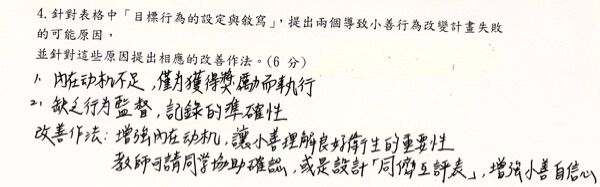 4. 針對表格中「目標行為的設定與敘寫」，提出兩個導致小善行為改變計畫失敗
的可能原因，
並針對這些原因提出相應的改善作法。(6 分)
1. 內在动机不足，僅為獲得獎勵而執行
2. 缺乏行為監督，記錄的準確性
改善作法：增強內在动机，讓小善理解良好衛生的重要性
教師可請同學協助確認，或是設計「同儕互評表」，增強小善自信心